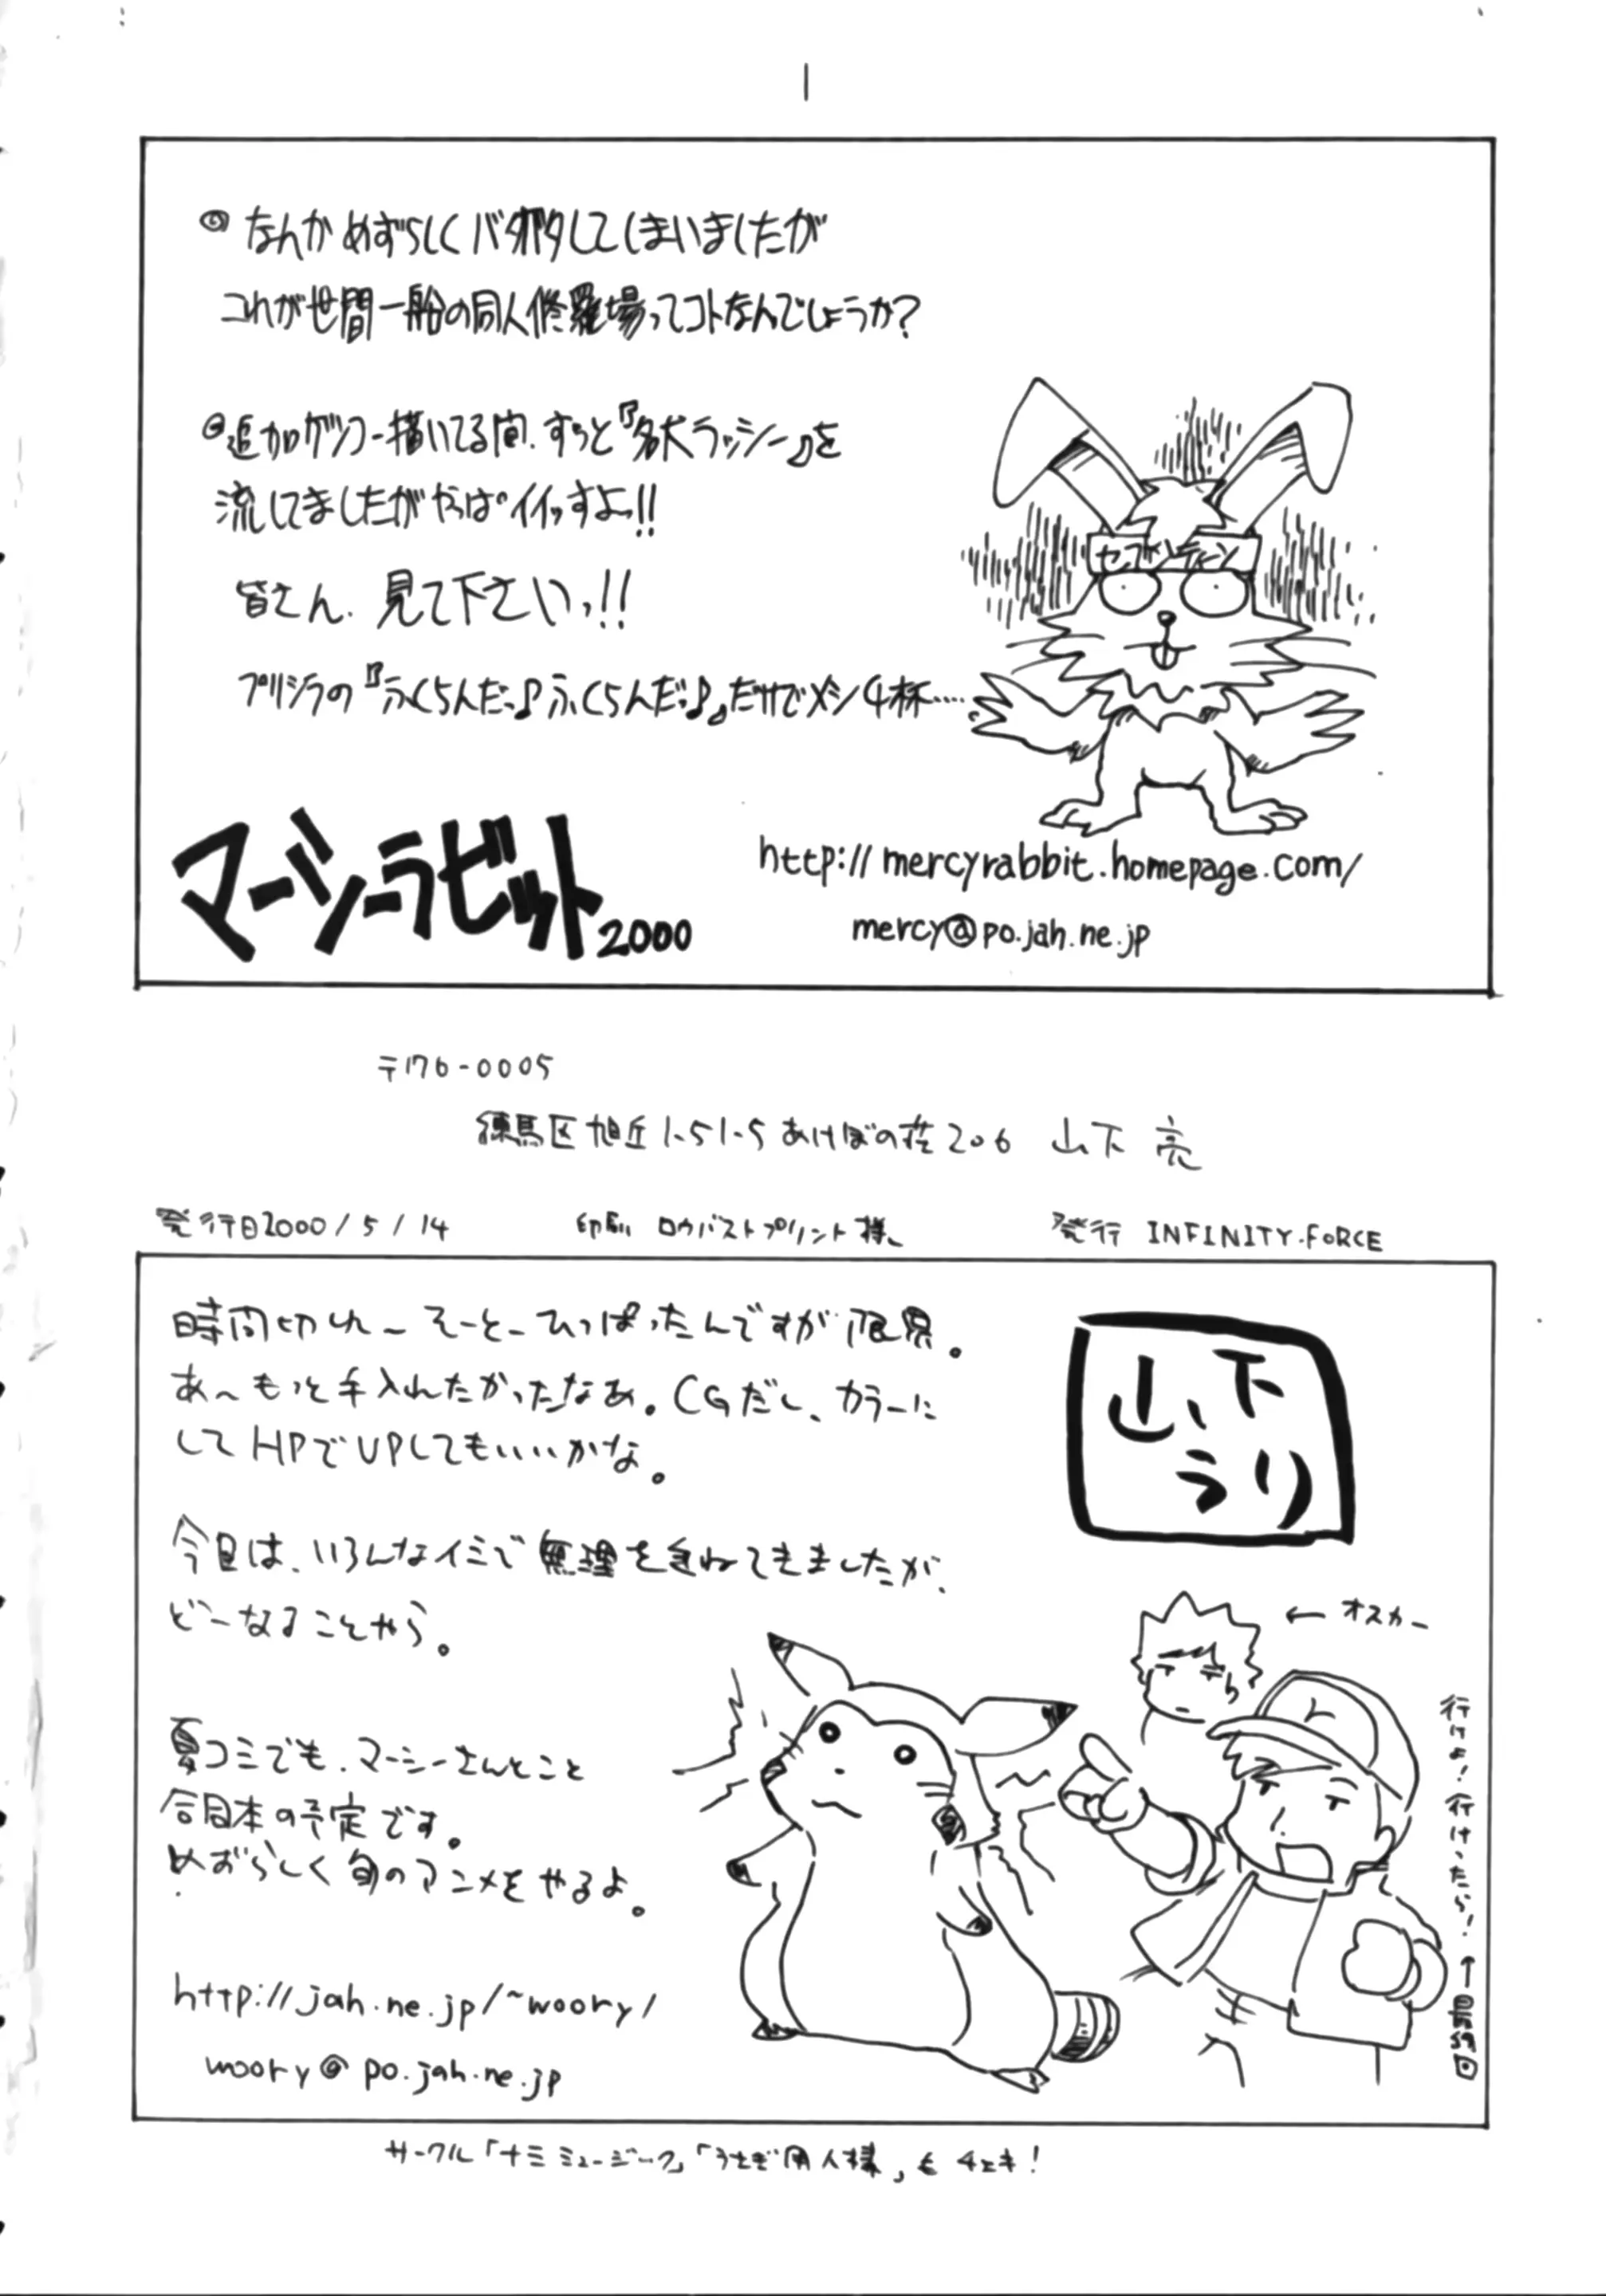 ◎なんかめずらしくバタバタしてしまいましたが
これが世間一般の同人修羅場ってコトなんでしょうか?
◎追加ゲンコー描いてる間、ずっと『名犬ラッシー』を
流してましたがやっぱイイっすよっ!!
皆さん、見て下さいっ!!
プリシラの『ふくらんだっ♪ふくらんだっ♪』だけでメシ4杯……
ヤコザデン
マーシーラビット2000
http://mercyrabbit.homepage.com/
mercy@po.jah.ne.jp
〒176-0005
練馬区旭丘1-51-5あけぼの荘206 山下 亮
発行日2000/5/14 印刷 ロウバストプリント様 発行 INFINITY-FORCE
時間切れ〜そーとーひっぱったんですが限界。
あ〜もっと手入れたかったなあ。CGだし、カラーに
してHPでUPしてもいいかな。
山下
うり
今回は、いろんなイミで無理を重ねてきましたが、
どーなることやら。
←オスカー
夏コミでも、マーシーさんとこと
合同本の予定です。
めずらしく旬のアニメをやるよ。
行けよ!行けったら!←最終回
http://jah.ne.jp/~woory/
woory@po.jah.ne.jp
サークル「ナミミュージック」「うさぎ同人様」もチェキ!